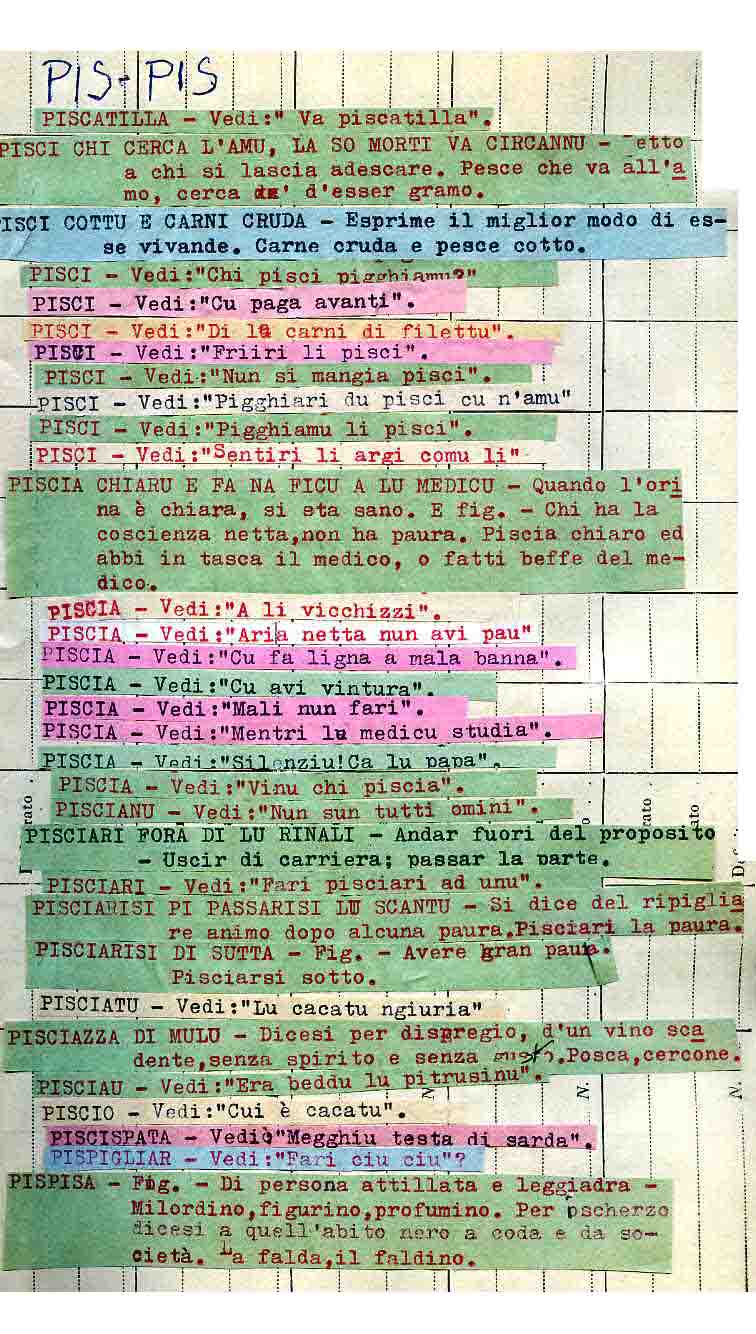 PIS-PIS
PISCATILLA - Vedi:" Va piscatilla".
PISCI CHI CERCA L'AMU, LA SO MORTI VA CIRCANNU - etto
a chi si lascia adescare. Pesce che va all'a
mo, cerca d'esser gramo.
ISCI COTTU E CARNI CRUDA - Esprime il miglior modo di es-
se vivande. Carne cruda e pesce cotto.
PISCI - Vedi:"Chi pisci pigghiamu?"
PISCI - Vedi:"Cu paga avanti".
PISCI - Vedi:"Di la carni di filettu".
PISCI - Vedi:"Friiri li pisci".
PISCI - Vedi:"Nun si mangia pisci".
PISCI - Vedi:"Pigghiari du pisci cu n'amu"
PISCI - Vedi:"Pigghiamu li pisci".
PISCI - Vedi:"Sentiri li argi comu li"
PISCIA CHIARU E FA NA FICU A LU MEDICU - Quando l'ori
na è chiara, si sta sano. E fig. - Chi ha la
coscienza netta,non ha paura. Piscia chiaro ed
abbi in tasca il medico, o fatti beffe del me-
dico.
PISCIA - Vedi:"A li vicchizzi".
PISCIA - Vedi:"Aria netta nun avi pau"
PISCIA - Vedi:"Cu fa ligna a mala banna".
PISCIA - Vedi:"Cu avi vintura".
PISCIA - Vedi:"Mali nun fari".
PISCIA - Vedi:"Mentri lu medicu studia".
PISCIA - Vedi:"Silenziu!Ca lu papa".
PISCIA - Vedi:"Vinu chi piscia".
PISCIANU - Vedi:"Nun sun tutti omini".
PISCIARI FORA DI LU RINALI - Andar fuori del proposito
- Uscir di carriera; passar la parte.
PISCIARI - Vedi:"Fari pisciari ad unu".
PISCIARISI PI PASSARISI LU SCANTU - Si dice del ripiglia
re animo dopo alcuna paura.Pisciari la paura.
PISCIARISI DI SUTTA - Fig. - Avere gran paura.
Pisciarsi sotto.
PISCIATU - Vedi:"Lu cacatu ngiuria"
PISCIAZZA DI MULU - Dicesi per dispregio, d'un vino sca
dente,senza spirito e senza gusto.Posca,cercone.
PISCIAU - Vedi:"Era beddu lu pitrusinu".
PISCIO - Vedi:"Cui è cacatu".
PISCISPATA - Vediò"Megghiu testa di sarda".
PISPIGLIAR - Vedi:"Fari ciu ciu"?
PISPISA - Fig. - Di persona attillata e leggiadra -
Milordino,figurino,profumino. Per pscherzo
dicesi a quell'abito nero a coda e da so-
cietà. La falda,il faldino.
rato
rato
ito
N.
N.
N.